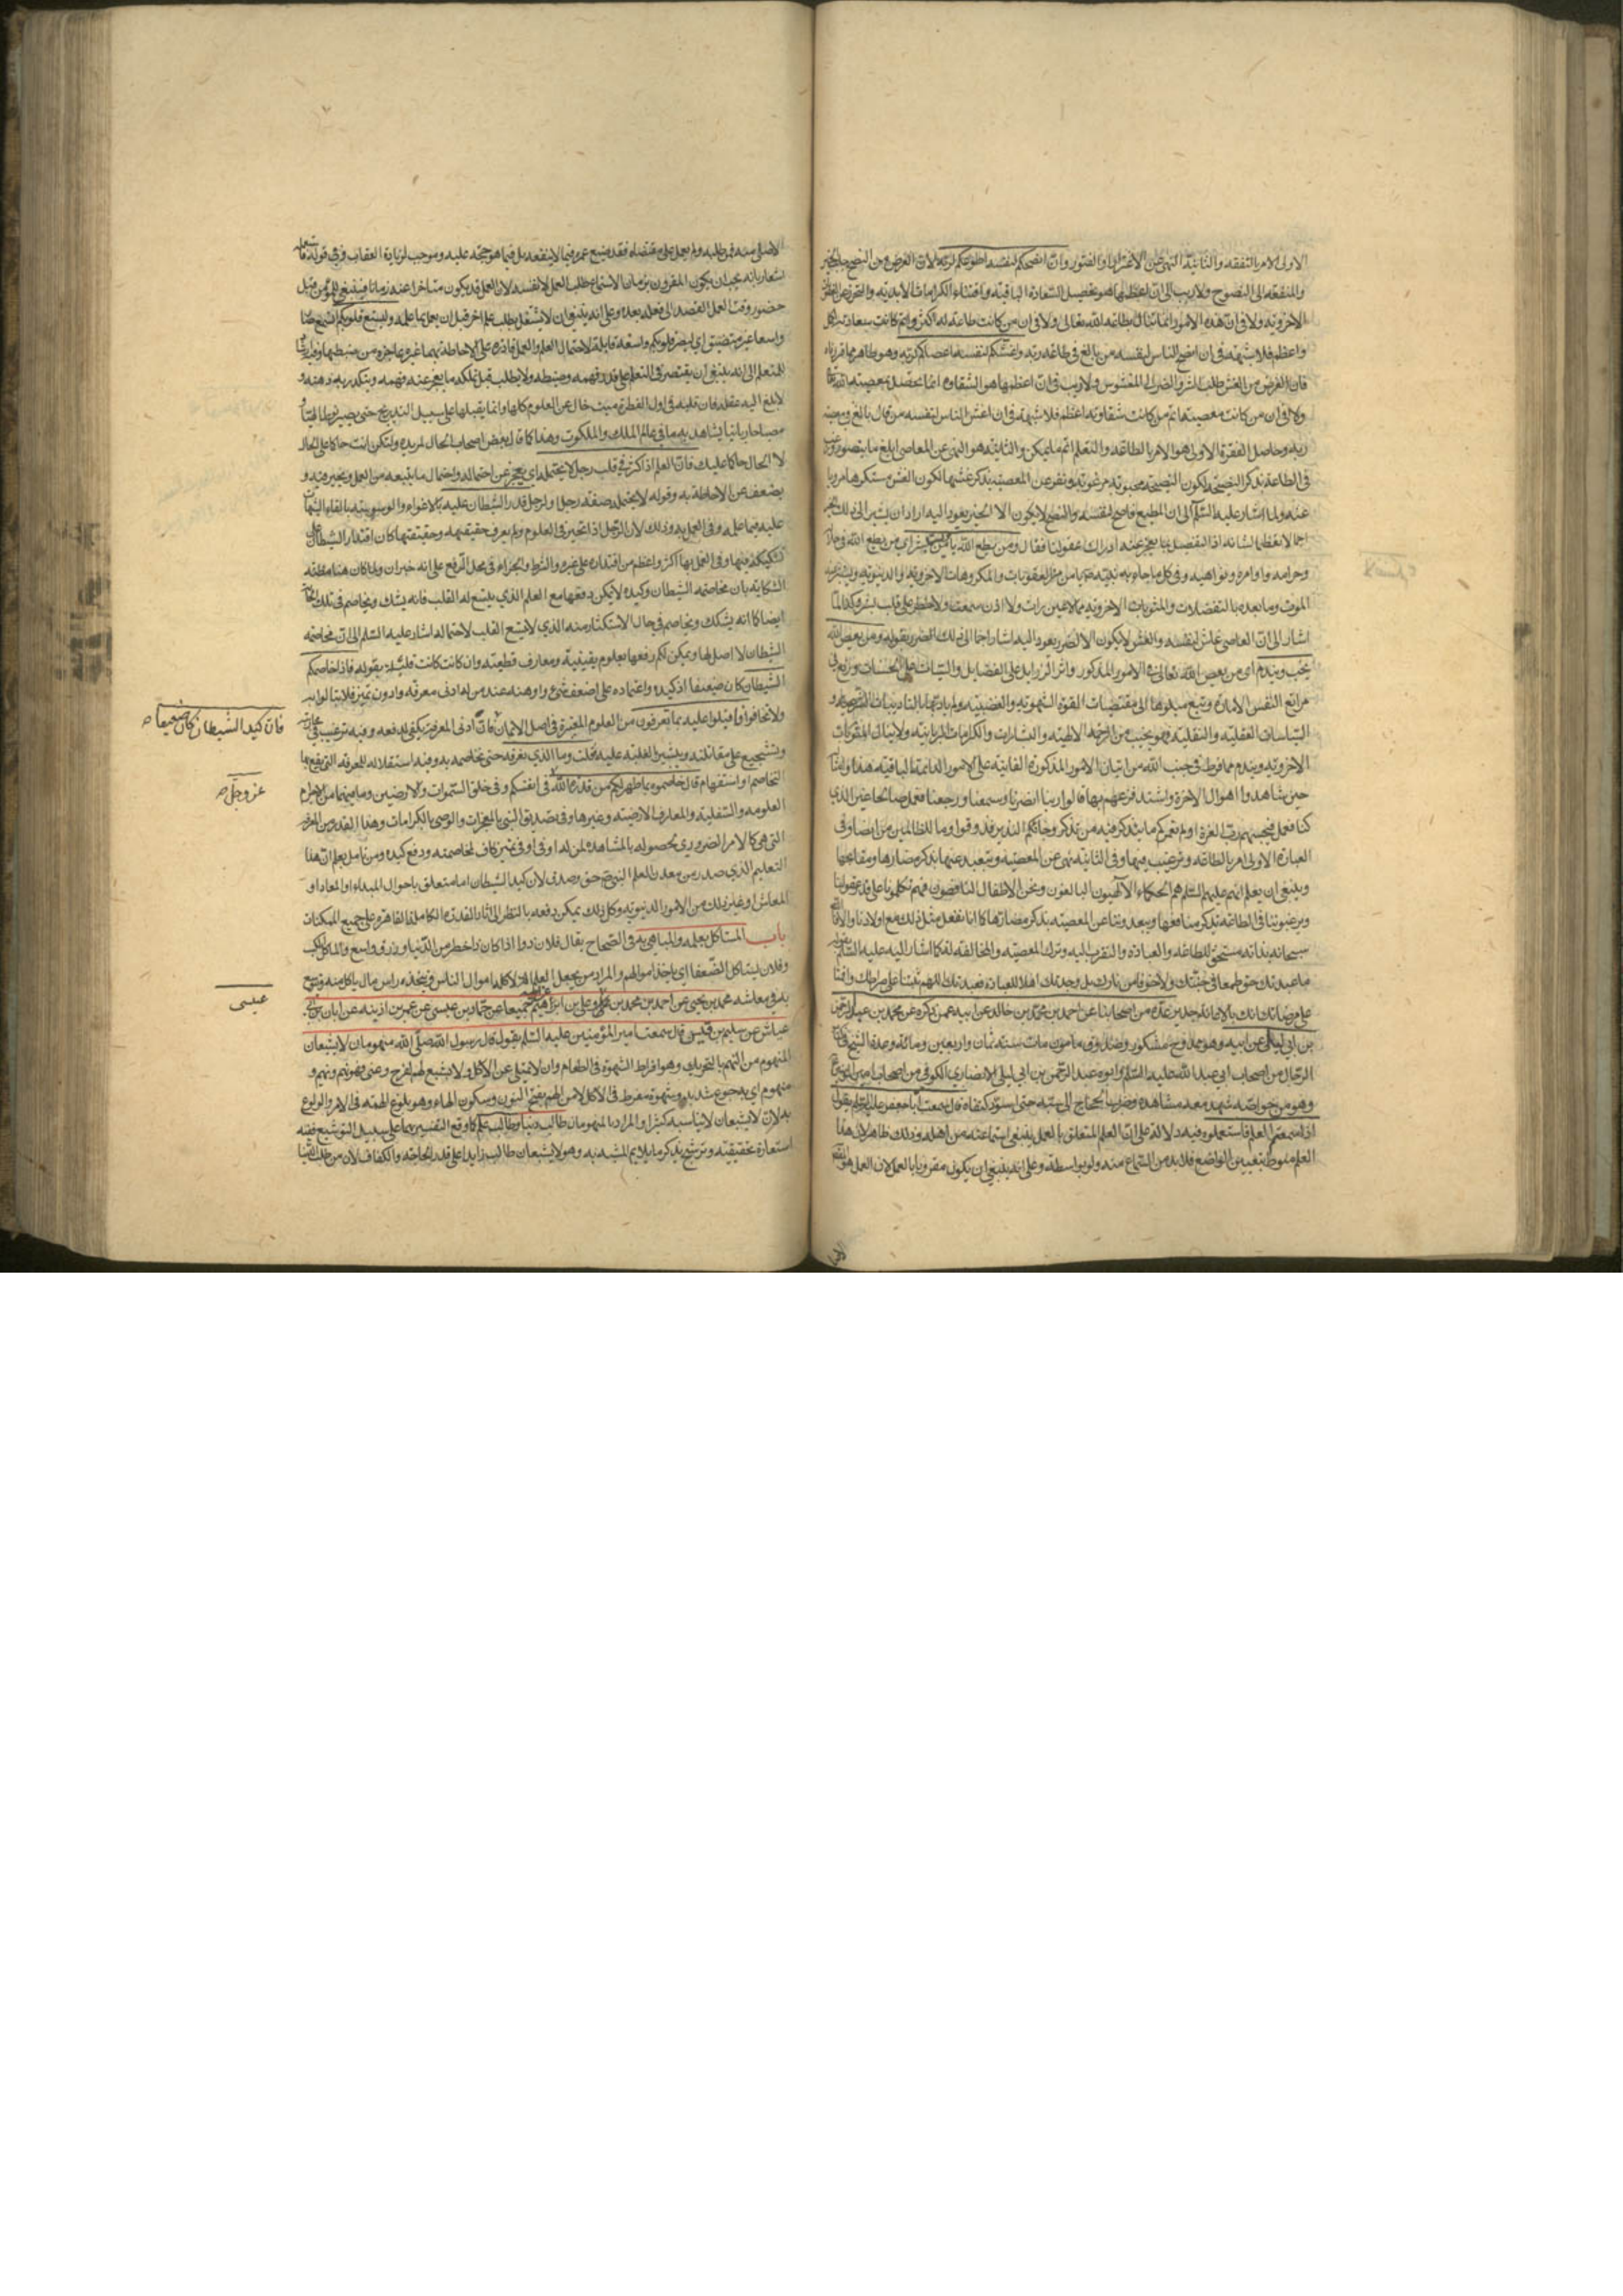 الاولى الامر بالتفقه والثانية النهي عن الاغترار والفتور وان انصحكم لنفسه اطوعكم لربه لان الغرض من النصح جلب الخير
والمنفعة الى المنصوح ولا ريب في ان اعظمها هو تحصيل السعادة الباقية واقتناء الكرامات الابدية
الاخروية ولا في ان هذه الامور انما تنال بطاعة الله تعالى ولا في ان من كانت طاعته له اكثر واتم كانت سعادته اكمل
واعظم فلا شبهة في ان انصح الناس لنفسه من بالغ في طاعة ربه واغشكم لنفسه اعصاكم لربه وهو ظاهر مما قررناه
فان الغرض من الغش طلب الشر والضرر الى المغشوش ولا ريب في ان اعظمها هو الشقاوة انما تحصل بمعصية الله
ولا في ان من كانت معصيته اتم كانت شقاوته اعظم فلا شبهة في ان اغش الناس لنفسه من بالغ في معصية
ربه وحاصل الفقرة الاولى هو الامر بالطاعة والثانية هو النهي عن المعاصي ابلغ ما يتصور
في الطاعة بذكر النصيحة لكون النصيحة محبوبة مرغوبة ونفر عن المعصية بذكر غشها لكون الغش مستكرها
عنه ولما اشار عليه السلام الى ان المطيع ناصح لنفسه والنصح لا يكون الا لخير يعود اليه اراد ان يشير الى ذلك الخير
اجمالا تعظيما لشانه اذ التفصيل مما يعجز عنه ادراك عقولنا فقال ومن يطع الله يامن ويستبشر اي من يطع الله في حلاله
وحرامه واوامره ونواهيه وفي كل ما جاء به نبيه يامن من العقوبات والمكروهات الاخروية والدنيوية ويستبشر
الموت وما بعده بالتفضلات والمثوبات الاخروية مما لا عين رات ولا اذن سمعت ولا خطر على قلب بشر وكذا لما
اشار الى ان العاصي غاش لنفسه والغش لا يكون الا لضرر يعود اليه اشار اجمالا الى ذلك الضرر بقوله ومن يعص الله
يخب ويندم اي من يعص الله تعالى في الامور المذكورة واثر الرذايل على الفضايل والسيئات على الحسنات ورتع في
مراتع النفس الامارة وتتبع ميلها الى مقتضيات القوة الشهوية والغضبية ولم يادبها بالتاديبات الشرعية و
السياسات العقلية والنقلية فهو يخيب من الرحمة الالهية والبشارات والكرامات الربانية ولا ينال المثوبات
الاخروية ويندم مما فرط في جنب الله من اتيان الامور المذكورة الفانية على الامور الدائمة الباقية
حين شاهدوا اهوال الاخرة واشتد فزعهم بها قالوا ربنا ابصرنا وسمعنا فارجعنا نعمل صالحا غير الذي
كنا نعمل فيجيبهم رب العزة اولم نعمركم ما يتذكر فيه من تذكر وجاءكم النذير فذوقوا وما للظالمين من انصار وفي
العبارة الاولى امر بالطاعة وترغيب فيها وفي الثانية نهي عن المعصية وتبعيد عنها بذكر مضارها ومقابحها
وينبغي ان يعلم انهم عليهم السلم هم الحكماء الالهيون البالغون ونحن الاطفال الناقصون فهم تكلمونا على قدر عقولنا
ويرغبوننا في الطاعة بذكر منافعها ويبعدوننا عن المعصية بذكر مضارها كما انا نفعل مثل ذلك مع اولادنا والا
سبحانه بذاته مستحق للطاعة والعبادة والتقرب اليه وترك المعصية والمخالفة له كما اشار اليه عليه السلم بقوله
ما عبدتك طمعا في جنتك ولا خوفا من نارك بل وجدتك اهلا للعبادة فعبدتك اللهم ثبتنا على صراطك
على مرضاتك عدة من اصحابنا عن احمد بن محمد بن خالد عن ابيه عمن ذكره عن محمد بن عبد الرحمن
بن ابي ليلى عن ابيه وهو ممدوح مشكور صدوق مامون مات سنة ثمان واربعين ومائة وعده الشيخ في كتاب
الرجال من اصحاب ابي عبد الله عليه السلم وابوه عبد الرحمن بن ابي ليلى الانصاري الكوفي من اصحاب امير المؤمنين
وهو من خواصه شهد معه مشاهده وضربه الحجاج حتى اسود كتفاه قال سمعت ابا جعفر عليه السلم يقول
اذا سمعتم العلم فاستعملوه فيه دلالة على ان العلم المتعلق بالعمل ينبغي استماعه من اهله وذلك ظاهر لان هذا
العلم منوط بتعيين الواضع فلا بد من السماع منه ولو بواسطة وعلى انه ينبغي ان يكون مقرونا بالعمل لان العمل هو
الاصل منه فمن طلبه ولم يعمل على مقتضاه فقد ضيع عمره فيما لا ينفعه بل فيما هو حجة عليه وموجب لزيادة العقاب وفي قوله
اشعار بانه يجب ان يكون المقرون بزمان الاستماع طلب العمل لا نفسه لان العمل قد يكون متاخرا عنه زمانا فينبغي قبل
حضور وقت العمل القصد الى فعله بعده وعلى انه ينبغي ان لا يشتغل بطلب علم اخر قبل ان يعمل بما علمه ولتتسع قلوبكم
واسعا غير متضيق اي لتصر قلوبكم واسعة قابلة لاحتمال العلم والعمل قادرة على الاحاطة بهما غير عاجزة من ضبطهما
للمتعلم الى انه ينبغي ان يقتصر في التعلم على قدر فهمه وضبطه ولا يطلب قبل تملكه ما يعجز عنه فهمه ويتكدر به ذهنه و
لا يبلغ اليه عقله فان قلبه في اول الفطرة ميت خال عن العلوم كلها وانما يقبلها على سبيل التدريج حتى يصير
مصباحا ربانيا يشاهد به ما في عالم الملك والملكوت وهذا كما قال بعض اصحاب الحال لمريده ولتكن انت حاكما على الحال
لا الحال حاكما عليك فان العلم اذا كثر في قلب رجل لا يحتمله اي يعجز عن احتماله واحتمال ما يتبعه من العمل ويتحير فيه و
يضعف عن الاحاطة به وقوله لا يحتمله صفة رجل قدر الشيطان عليه بالاغواء والوسوسة بالقاء الشبهات
عليه فيما علمه وفي العمل به وذلك لان الرجل اذا تحير في العلوم ولم يعرف حقيقتها كان اقتدار الشيطان على
تشكيكه فيها وفي العمل بها اكثر واعظم من اقتداره على غيره والشرط والجزاء في محل الرفع على انه خبر ان ولما كان هنا مظنة
الشكاية بان مخاصمة الشيطان وكيده لا يمكن دفعها مع العلم الذي يتسع له القلب فانه يشك ويخاصم في تلك
ايضا كما انه يشكك ويخاصم في حال الاستكثار منه الذي لا يتسع القلب لاحتماله اشار عليه السلم الى ان مخاصمة
الشيطان لا اصل لها ويمكن لكم دفعها بعلوم يقينية ومعارف قطعية وان كانت قليلة بقوله فاذا خاصمكم
الشيطان كان ضعيفا اذ كيده واعتماده على اضعف شيء واوهنه عند من له ادنى معرفة وادون تميز فلا تبالوا به
ولا تخافوا واقبلوا عليه بما تعرفون من العلوم المعتبرة في اصل الايمان فان ادنى المعرفة يكفي لدفعه وفيه ترغيب في
وتشجيع على مقاتلته وتبشير بالغلبة عليه فقلت وما الذي نعرفه حتى نخاصمه به وفيه استقلال للمعرفة التي يقع بها
التخاصم او استفهام قال خاصموه بما ظهر لكم من قدرة الله في انفسكم وفي خلق السموات والارضين وما بينهما
العلوية والسفلية والمعارف الارضية وغيرها وفي تصديق النبي بالمعجزات والوصي بالكرامات وهذا القدر من المعرفة
التي هي كالامر الضروري لحصوله بالمشاهدة لمن له اوفى تميز كاف لمخاصمته ودفع كيده ومن تامل يعلم ان هذا
التعليم الذي صدر من معدن العلم النبوي حق وصدق لان كيد الشيطان اما متعلق باحوال المبداء او المعاد او
المعاش او غير ذلك من الامور الدنيوية وكل ذلك يمكن دفعه بالنظر الى اثار القدرة الكاملة القاهرة على جميع الممكنات
باب المستاكل بعلمه والمباهي به في الصحاح يقال فلان ذو اكل اذا كان ذا حظ من الدنيا ورزق واسع والماكل الكسب
وفلان يستاكل الضعفا اي ياخذ اموالهم والمراد من يجعل العلم الة لاكله اموال الناس فيتخذه راس مال ياكل منه ويتوسع
به في معاشه محمد بن يحيى عن احمد بن محمد بن عيسى وعلي بن ابراهيم عن ابيه جميعا عن حماد بن عيسى عن عمر بن اذينه عن ابان بن ابي
عياش عن سليم بن قيس قال سمعت امير المؤمنين عليه السلم يقول قال رسول الله صلى الله منهومان لا يشبعان
المنهوم من النهم بالتحريك وهو افراط الشهوة في الطعام وان لا يمتلي عين الآكل ولا يشبع نهم كفرح وعني فهو نهم ونهيم و
منهوم اي به جوع شديد وشهوة مفرط في الاكل لا من النهم بفتح النون وسكون الهاء وهو بلوغ الهمة في الامر والولوع
به لان لا يشبعان لا يناسبه كثيرا والمراد بالمنهومان طالب دنيا وطالب علم كما وقع التفسير بهما على سبيل التوشيع ففيه
استعارة تحقيقية وترشيح بذكر ما يلايم المشبه به وهو لا يشبعان طالب زايد على قدر الحاجة والكفاف لان من طلب الدنيا
فان كيد الشيطان كان ضعيفا
عز وجل
عيسى